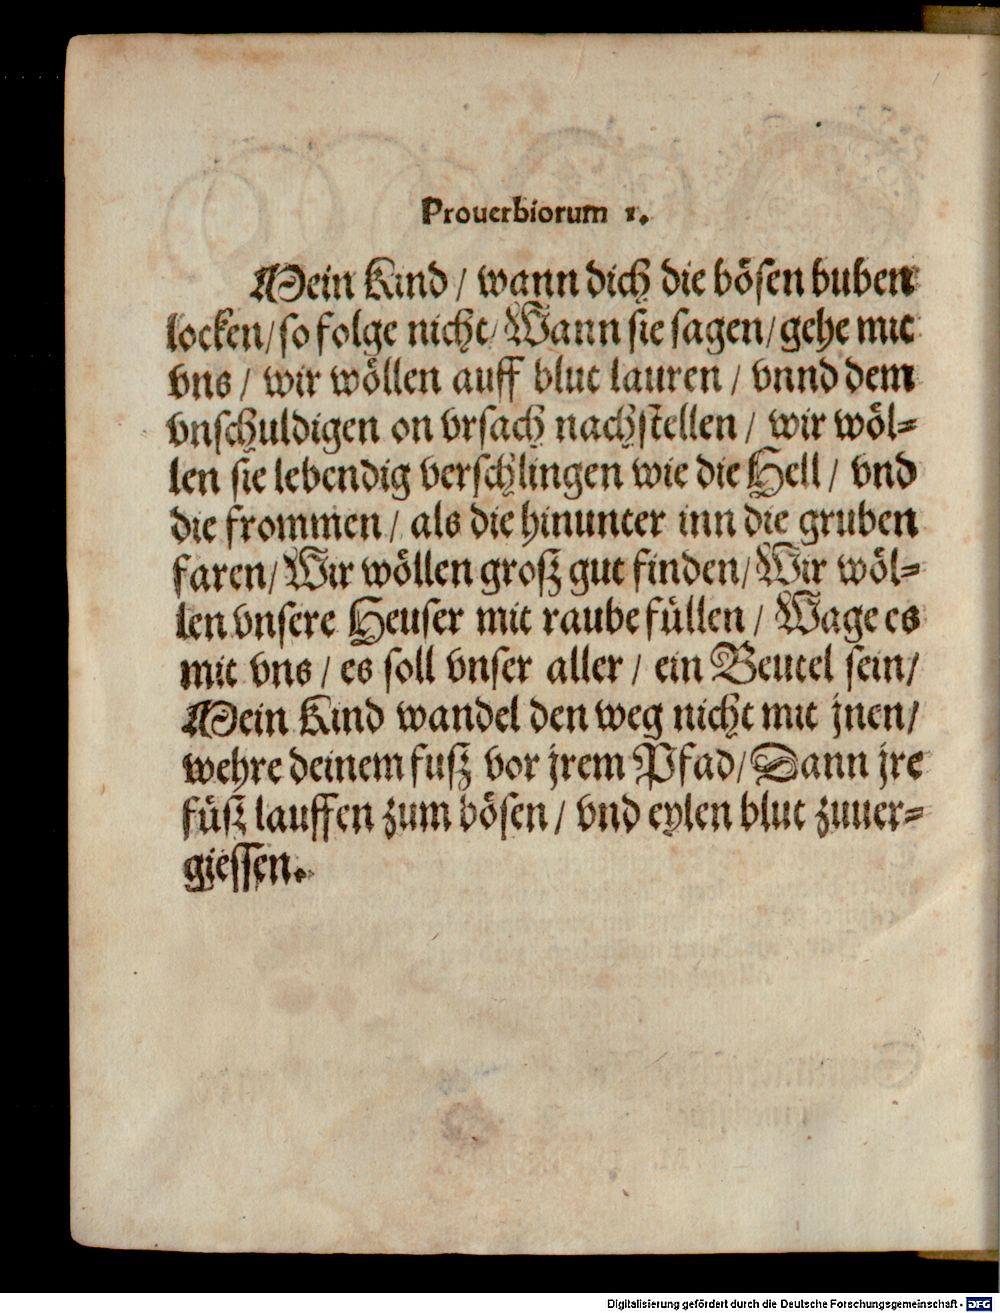 Prouerbiorum 1.
Mein Kind / wann dich die bösen buben
locken / so folge nicht / Wann sie sagen / gehe mit
vns / wir wöllen auff blut lauren / vnnd dem
vnschuldigen on vrsach nachstellen / wir wöl-
len sie lebendig verschlingen wie die Hell / vnd
die frommen / als die hinunter inn die gruben
faren / Wir wöllen groß gut finden / Wir wöl-
len vnsere Heuser mit raube füllen / Wage es
mit vns / es soll vnser aller / ein Beutel sein /
Mein Kind wandel den weg nicht mit jnen /
wehre deinem fuß vor jrem Pfad / Dann jre
füß lauffen zum bösen / vnd eylen blut zuuer-
giessen.
Digitalisierung gefördert durch die Deutsche Forschungsgemeinschaft - DFG